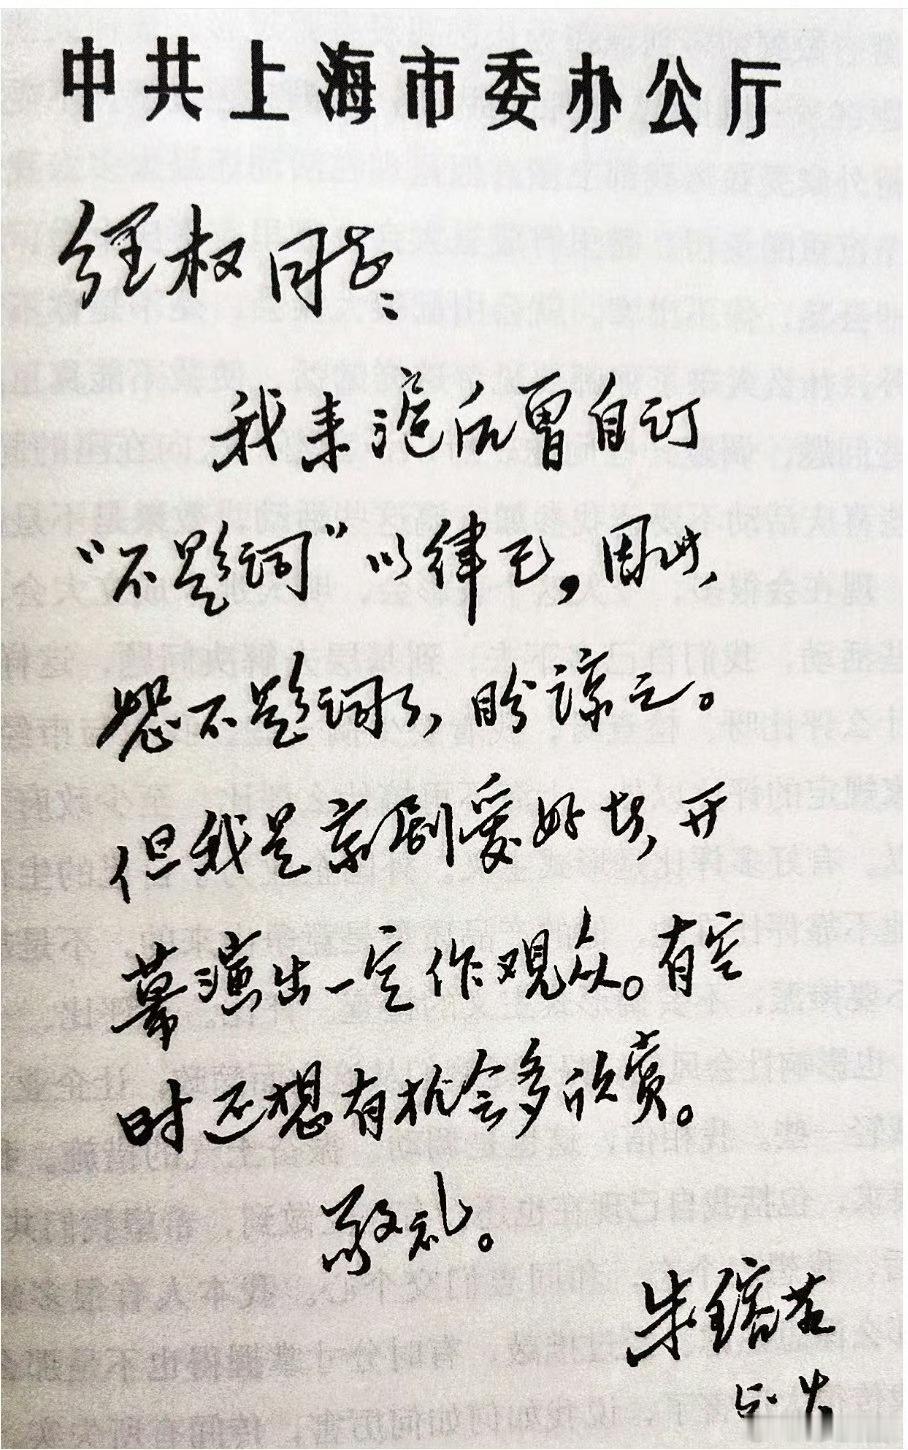 中共上海市委办公厅
经权同志：
我来沪后曾自订
“不题词”以律己。因此，
恕不题词了，盼谅之。
但我是京剧爱好者，开
幕演出一定作观众。有空
时还想有机会多欣赏。
敬礼。
朱镕基